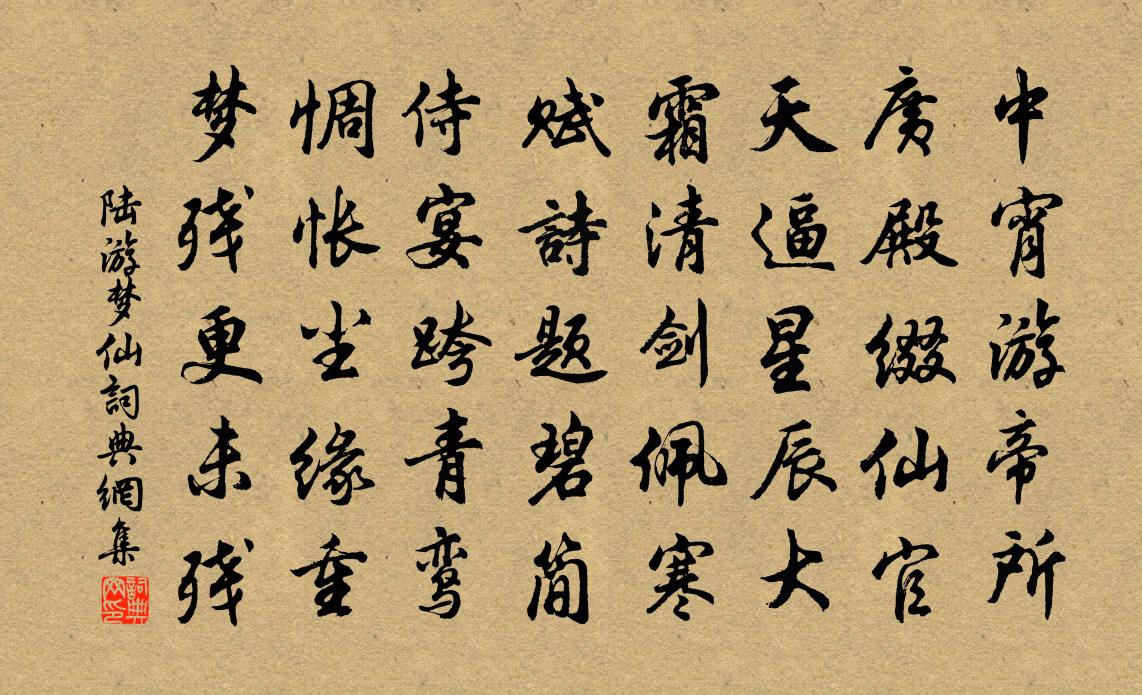 中宵游帝所
廣殿缀仙官
天逼星辰大
霜清剑佩寒
赋詩题碧简
侍宴跨青鸾
惆怅尘缘重
梦残更未残
陆游梦仙詞典網集
詞典网印